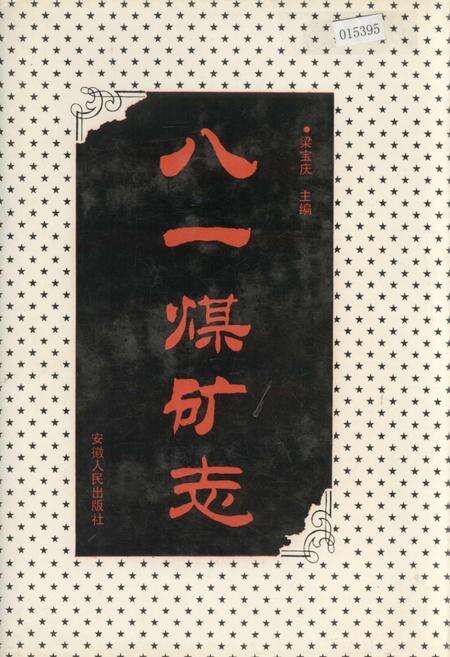 015395
●梁宝庆 主编
八一煤矿志
安徽人民出版社